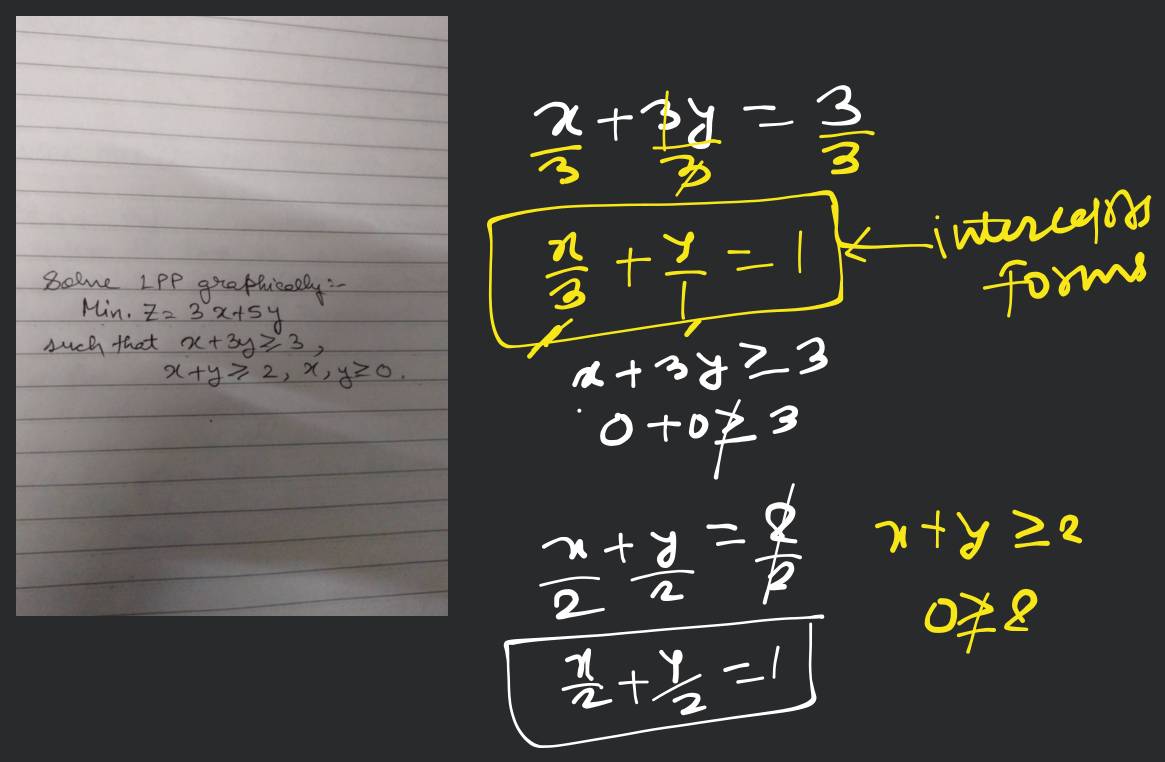 Solve LPP graphically:-
Min. Z = 3x+5y
such that x+3y ≥ 3,
x+y ≥ 2, x, y ≥ 0.
x/3 + 3y/3 = 3/3
x/3 + y/1 = 1 ← intercepts
forms
x + 3y ≥ 3
0 + 0 ≱ 3
x/2 + y/2 = 2/2
x + y ≥ 2
0 ≱ 2
x/2 + y/2 = 1